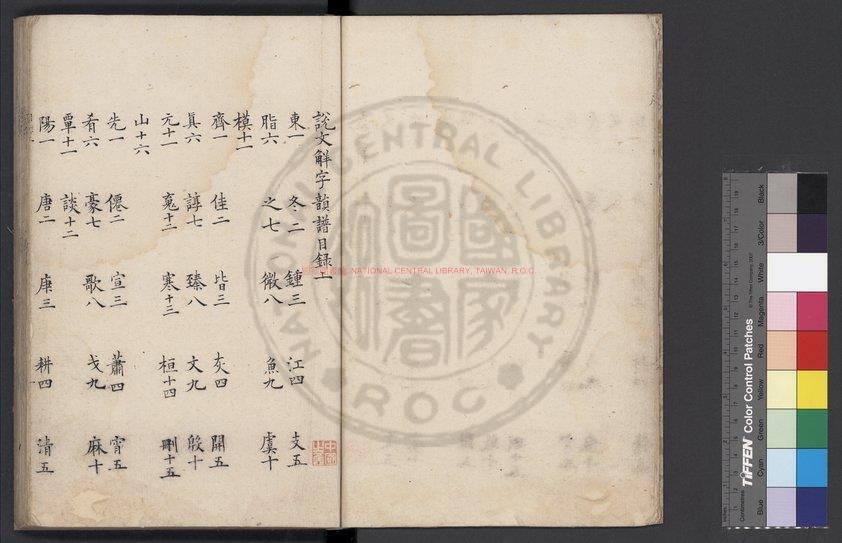 說文解字韻譜目録一
東一 冬二 鍾三 江四 支五
脂六 之七 微八 魚九 虞十
模十一
齊一 佳二 皆三 灰四 開五
眞六 諄七 臻八 文九 殷十
元十一 䰟十二 寒十三 桓十四 刪十五
山十六
先一 僊二 宣三 蕭四 宵五
肴六 豪七 歌八 戈九 麻十
覃十一 談十二
陽一 唐二 庚三 耕四 清五
NATIONAL CENTRAL LIBRARY
ROC
NATIONAL CENTRAL LIBRARY, TAIWAN, R.O.C.
TIFFEN Color Control Patches
© The Tiffen Company, 2007
Centimetres
Blue Cyan Green Yellow Red Magenta White 3/Color Black